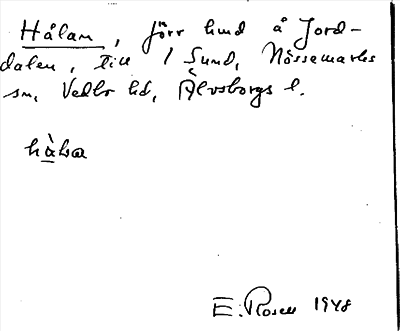 Hålan, förr lund å Jord-
dalen, till 1 Sund, Nössemarks
sn, Vedbo hd, Älvsborgs l.
E. Rosen 1948